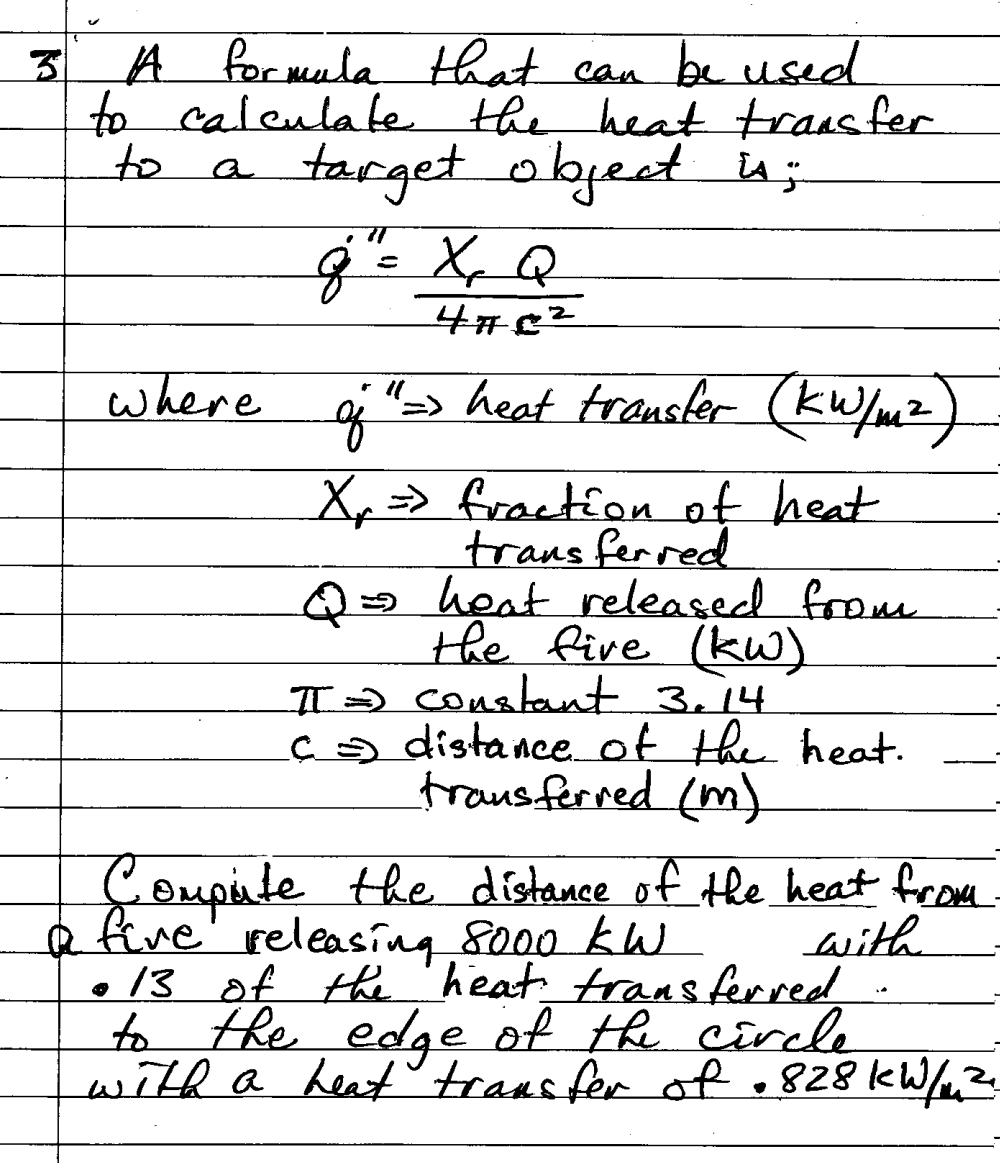 3 A formula that can be used
to calculate the heat transfer
to a target object is;
q̇" = Xᵣ Q
4 π c²
where q̇" ⇒ heat transfer (kW/m²)
Xᵣ ⇒ fraction of heat
transferred
Q ⇒ heat released from
the fire (kW)
π ⇒ constant 3.14
c ⇒ distance of the heat.
transferred (m)
Compute the distance of the heat from
a fire releasing 8000 kW with
.13 of the heat transferred
to the edge of the circle
with a heat transfer of .828 kW/m²